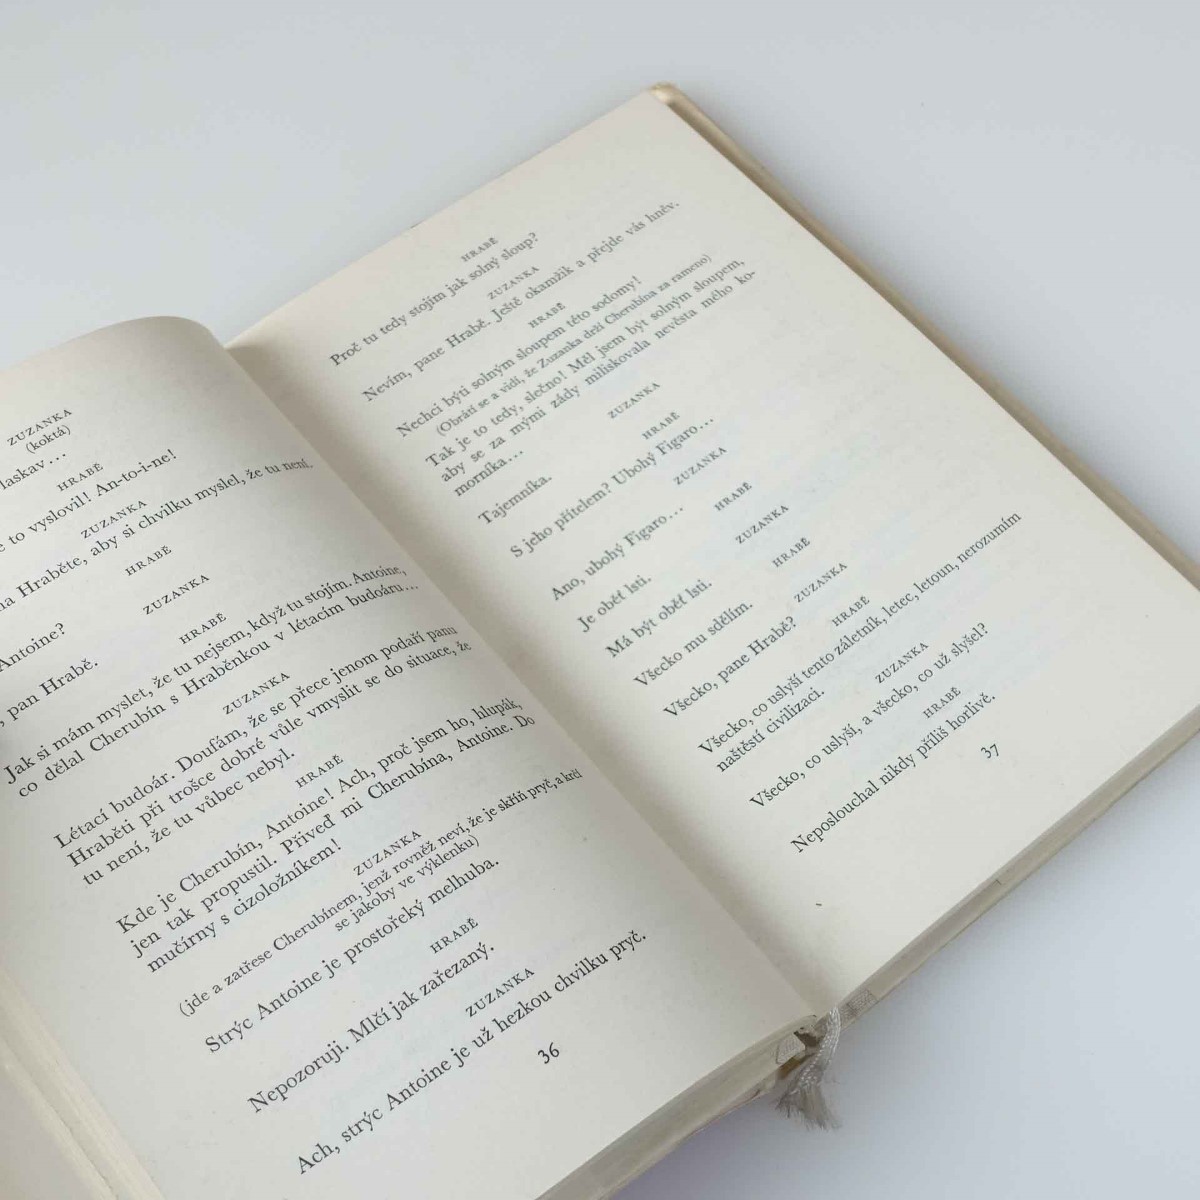 ZUZANKA
(koktá)
laskav...
HRABĚ
to vyslovil! An-to-i-ne!
ZUZANKA
Hraběte, aby si chvilku myslel, že tu není.
HRABĚ
Antoine?
ZUZANKA
pan Hrabě.
HRABĚ
Jak si mám myslet, že tu nejsem, když tu stojím. Antoine,
co dělal Cherubín s Hraběnkou v létacím budoáru...
ZUZANKA
Létací budoár. Doufám, že se přece jenom podaří panu
Hraběti při trošce dobré vůle vmyslit se do situace, že
tu není, že tu vůbec nebyl.
HRABĚ
Kde je Cherubín, Antoine! Ach, proč jsem ho, hlupák,
jen tak propustil. Přiveď mi Cherubína, Antoine. Do
mučírny s cizoložníkem!
ZUZANKA
(jde a zatřese Cherubínem, jenž rovněž neví, že je skříň pryč, a krčí
se jakoby ve výklenku)
Strýc Antoine je prostořeký melhuba.
HRABĚ
Nepozoruji. Mlčí jak zařezaný.
ZUZANKA
Ach, strýc Antoine je už hezkou chvilku pryč.
36
HRABĚ
Proč tu tedy stojím jak solný sloup?
ZUZANKA
Nevím, pane Hrabě. Ještě okamžik a přejde vás hněv.
HRABĚ
Nechci býti solným sloupem této sodomy!
(Obrátí se a vidí, že Zuzanka drží Cherubína za rameno)
Tak je to tedy, slečno! Měl jsem být solným sloupem,
aby se za mými zády miliskovala nevěsta mého ko-
morníka...
ZUZANKA
Tajemníka.
HRABĚ
S jeho přítelem? Ubohý Figaro...
ZUZANKA
Ano, ubohý Figaro...
HRABĚ
Je oběť lsti.
ZUZANKA
Má být oběť lsti.
HRABĚ
Všecko mu sdělím.
ZUZANKA
Všecko, pane Hrabě?
HRABĚ
Všecko, co uslyší tento záletník, letec, letoun, nerozumím
naštěstí civilizaci.
ZUZANKA
Všecko, co uslyší, a všecko, co už slyšel?
HRABĚ
Neposlouchal nikdy příliš horlivě.
37